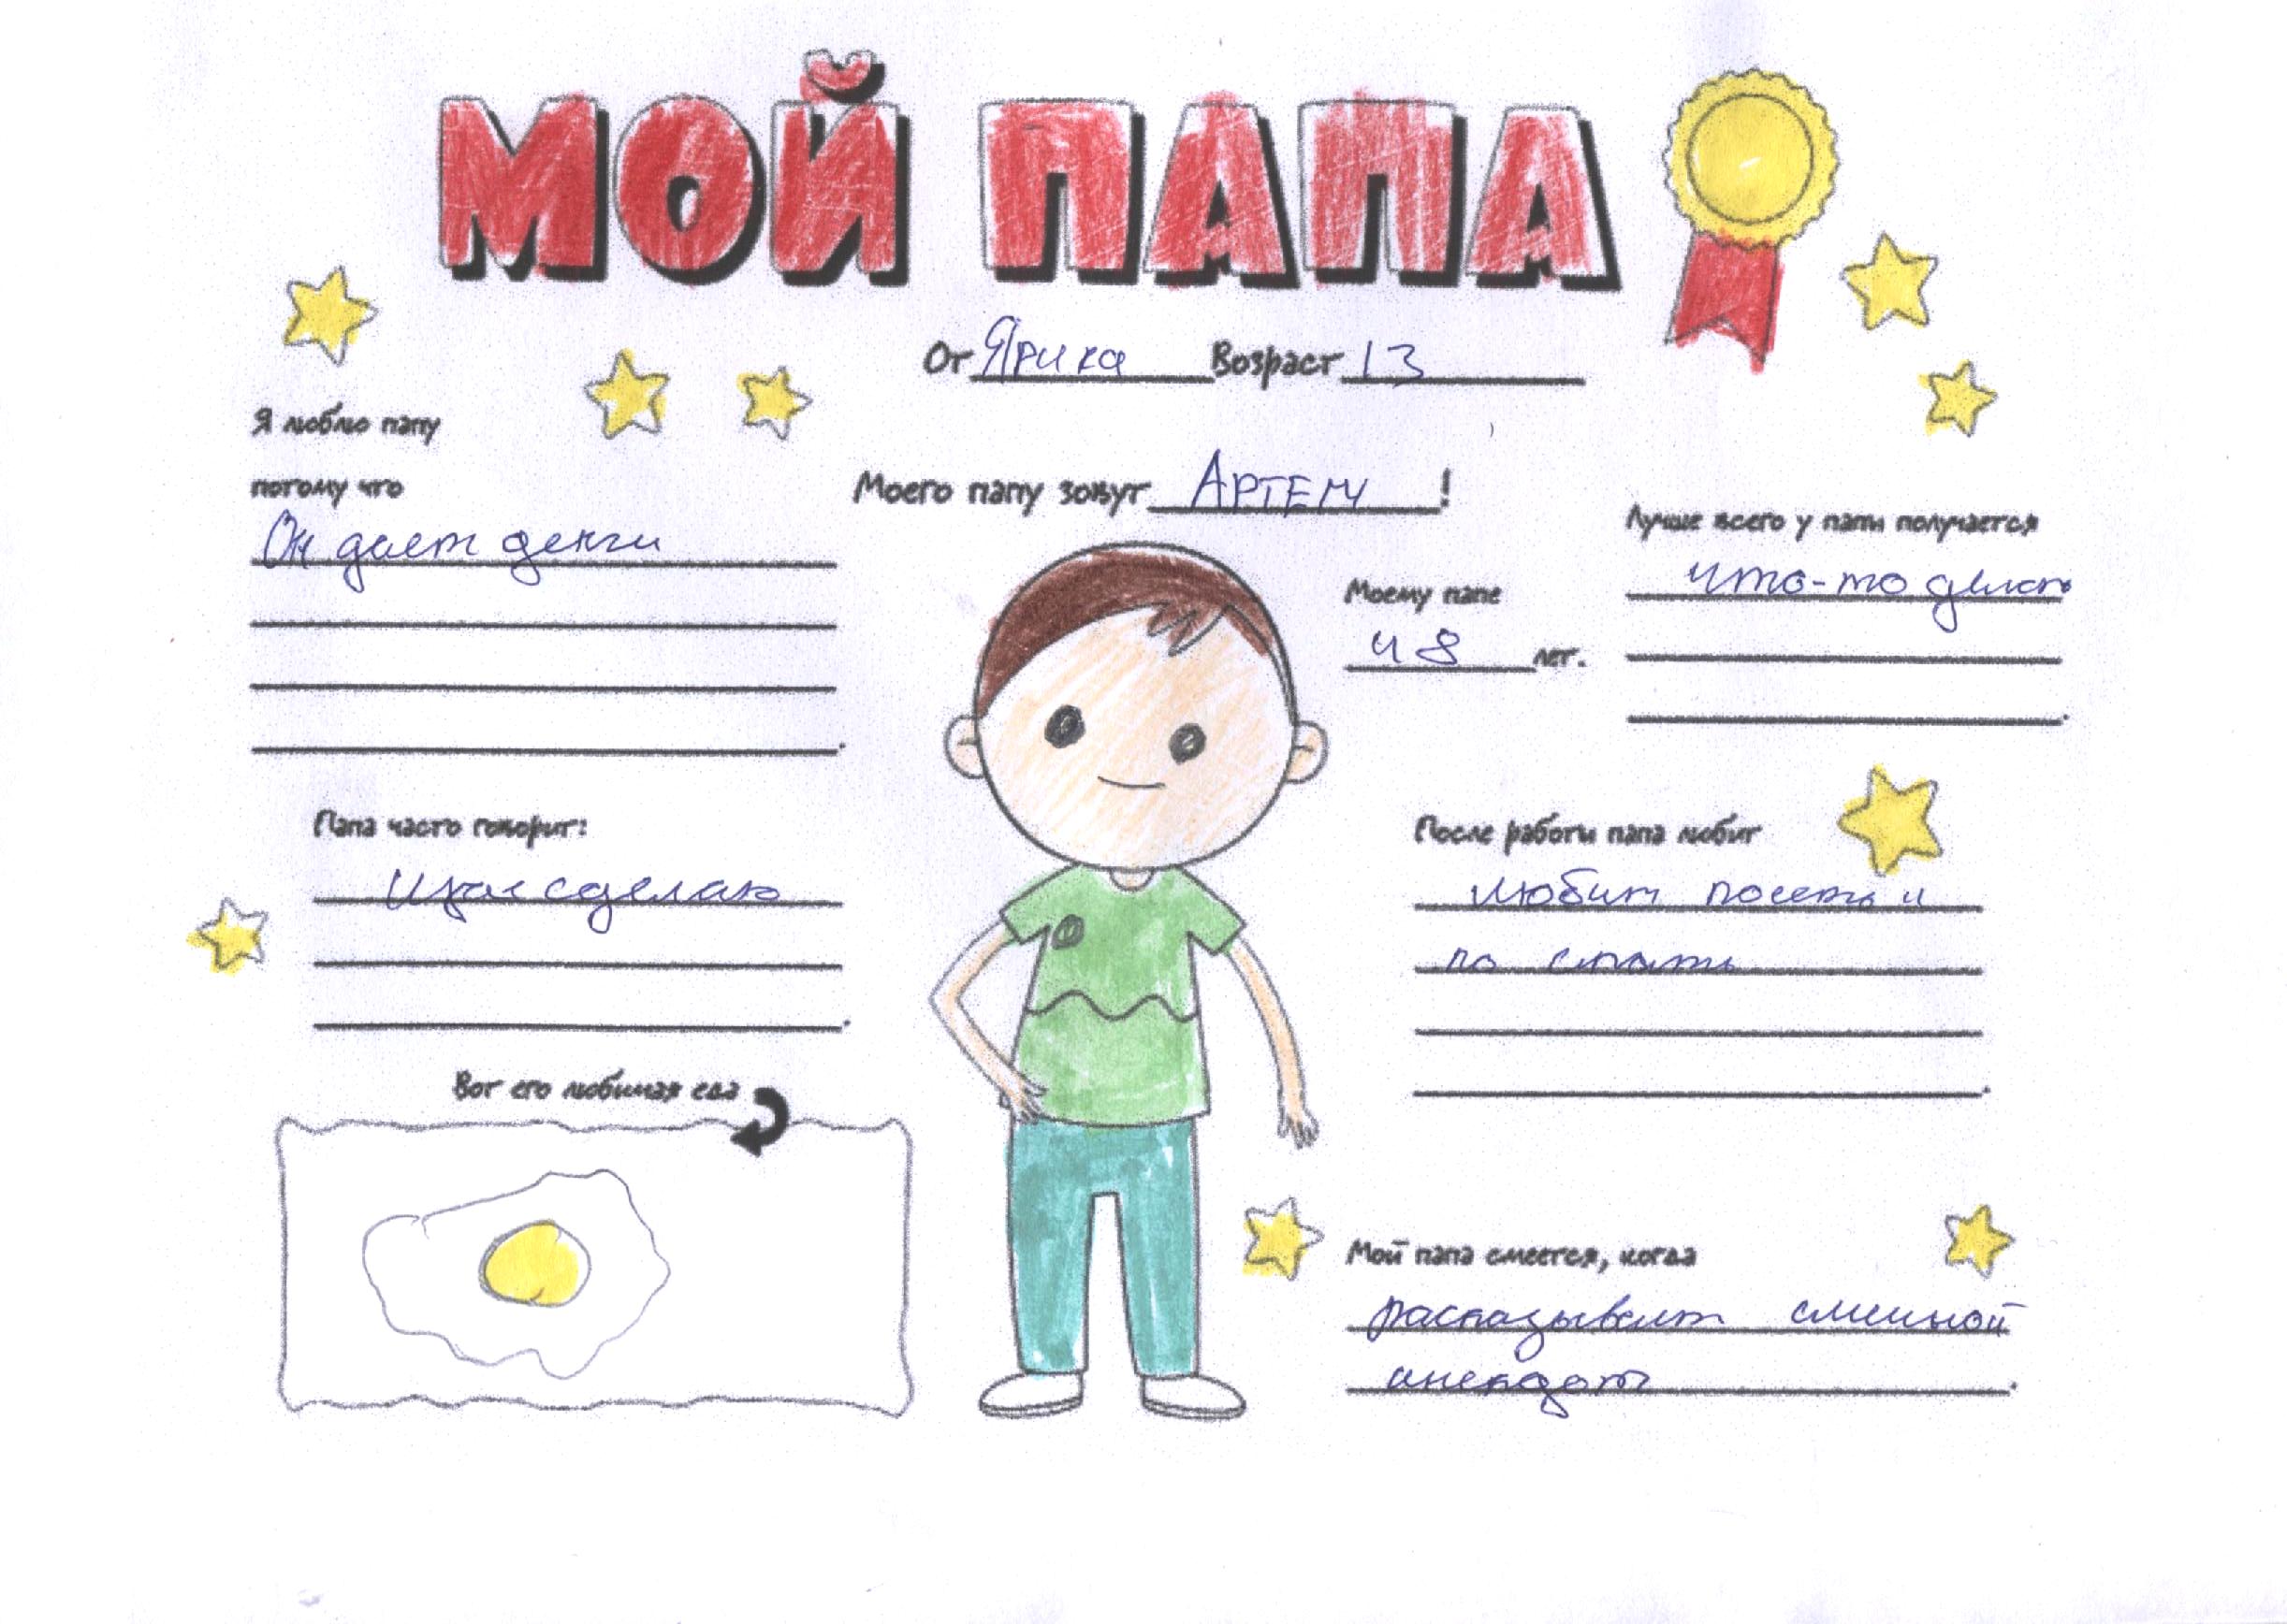 МОЙ ПАПА
От Ярика Возраст 13
Я люблю папу
потому что
Он дает денги
Моего папу зовут АРТЕМ!
Моему папе
48 лет.
Лучше всего у папы получается
что-то делать
Папа часто говорит:
сделаю
После работы папа любит
любит поесть и
по спать
Вот его любимая еда
Мой папа смеется, когда
расказывает смешной
анекдот.